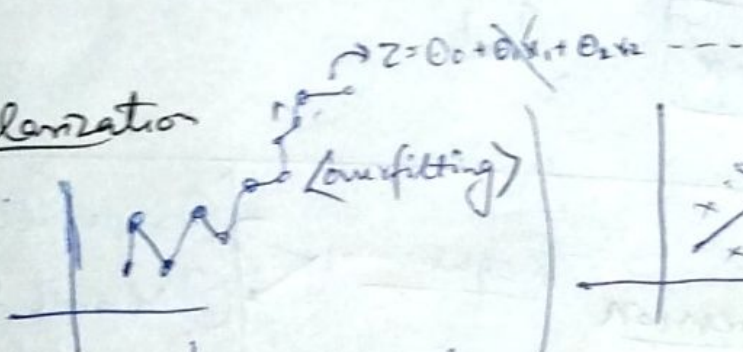 z = θ₀ + θ₁x₁ + θ₂x₂ ----
larization
<overfitting>